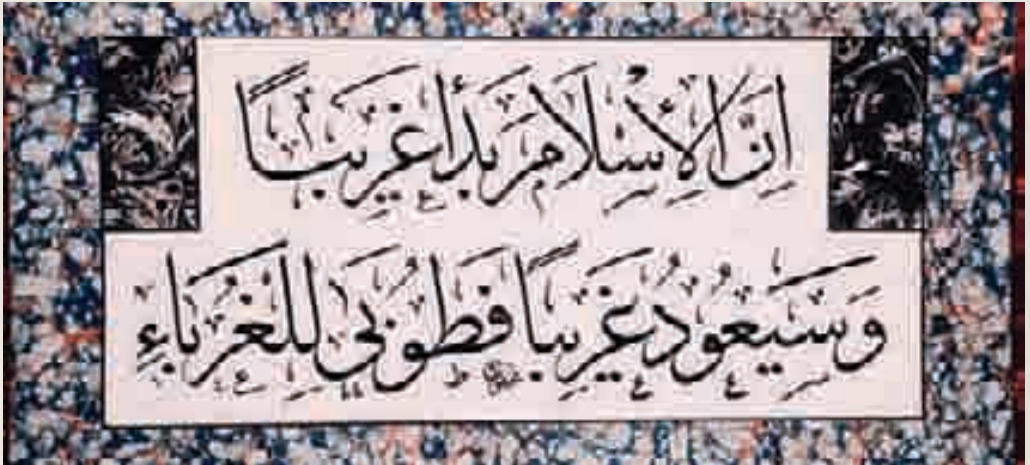 اِنَّ الْاِسْلَامَ بَدَأَ غَرِيبًا
وَسَيَعُودُ غَرِيبًا فَطُوبَى لِلْغُرَبَاءِ